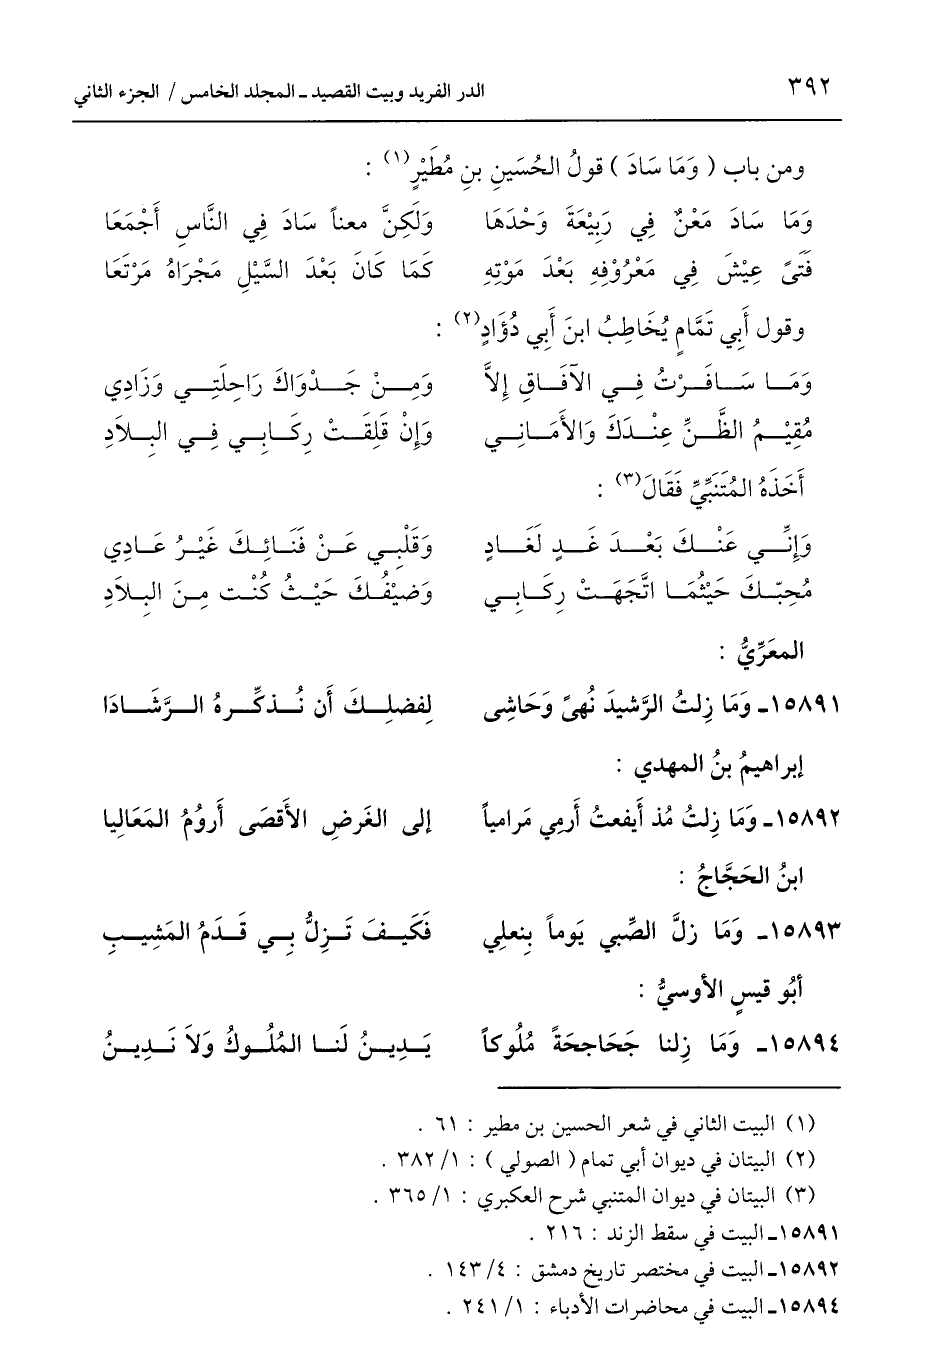 ٣٩٢ الدر الفريد وبيت القصيد ـ المجلد الخامس / الجزء الثاني
ومن باب ( وَمَا سَادَ ) قولُ الحُسَينِ بنِ مُطَيْرٍ(١) :
وَمَا سَادَ مَعْنٌ فِي رَبِيْعَةَ وَحْدَهَا وَلَكِنَّ معناً سَادَ فِي النَّاسِ أَجْمَعَا
فَتَىً عِيْشَ فِي مَعْرُوْفِهِ بَعْدَ مَوْتِهِ كَمَا كَانَ بَعْدَ السَّيْلِ مَجْرَاهُ مَرْتَعَا
وقول أَبِي تَمَّامٍ يُخَاطِبُ ابنَ أَبِي دُؤَادٍ(٢) :
وَمَا سَافَرْتُ فِي الآفَاقِ إِلاَّ وَمِنْ جَدْوَاكَ رَاحِلَتِي وَزَادِي
مُقِيْمُ الظَّنِّ عِنْدَكَ وَالأَمَانِي وَإِنْ قَلِقَتْ رِكَابِي فِي البِلاَدِ
أَخَذَهُ المُتَنَبِّيِّ فَقَالَ(٣) :
وَإِنِّي عَنْكَ بَعْدَ غَدٍ لَغَادٍ وَقَلْبِي عَنْ فَنَائِكَ غَيْرُ عَادِي
مُحِبّكَ حَيْثُمَا اتَّجَهَتْ رِكَابِي وَضيْفُكَ حَيْثُ كُنْت مِنَ البِلاَدِ
المعَرِّيُّ :
١٥٨٩١ـ وَمَا زِلتُ الرَّشيدَ نُهىً وَحَاشِى لِفضلِكَ أن نُذكِّرهُ الرَّشَادَا
إبراهيمُ بنُ المهدي :
١٥٨٩٢ـ وَمَا زِلتُ مُذ أَيفعتُ أَرمِي مَرامياً إلى الغَرضِ الأَقصَى أَرومُ المَعَالِيا
ابنُ الحَجَّاجُ :
١٥٨٩٣ـ وَمَا زلَّ الصِّبي يَوماً بِنعلِي فَكَيفَ تَزِلُّ بِي قَدَمُ المَشِيبِ
أبُو قيسٍ الأوسيُّ :
١٥٨٩٤ـ وَمَا زِلنا جَحَاجحَةً مُلُوكاً يَدِينُ لَنا المُلُوكُ وَلاَ نَدِينُ
(١) البيت الثاني في شعر الحسين بن مطير : ٦١ .
(٢) البيتان في ديوان أبي تمام ( الصولي ) : ١/ ٣٨٢ .
(٣) البيتان في ديوان المتنبي شرح العكبري : ١/ ٣٦٥ .
١٥٨٩١ـ البيت في سقط الزند : ٢١٦ .
١٥٨٩٢ـ البيت في مختصر تاريخ دمشق : ٤/ ١٤٣ .
١٥٨٩٤ـ البيت في محاضرات الأدباء : ١/ ٢٤١ .